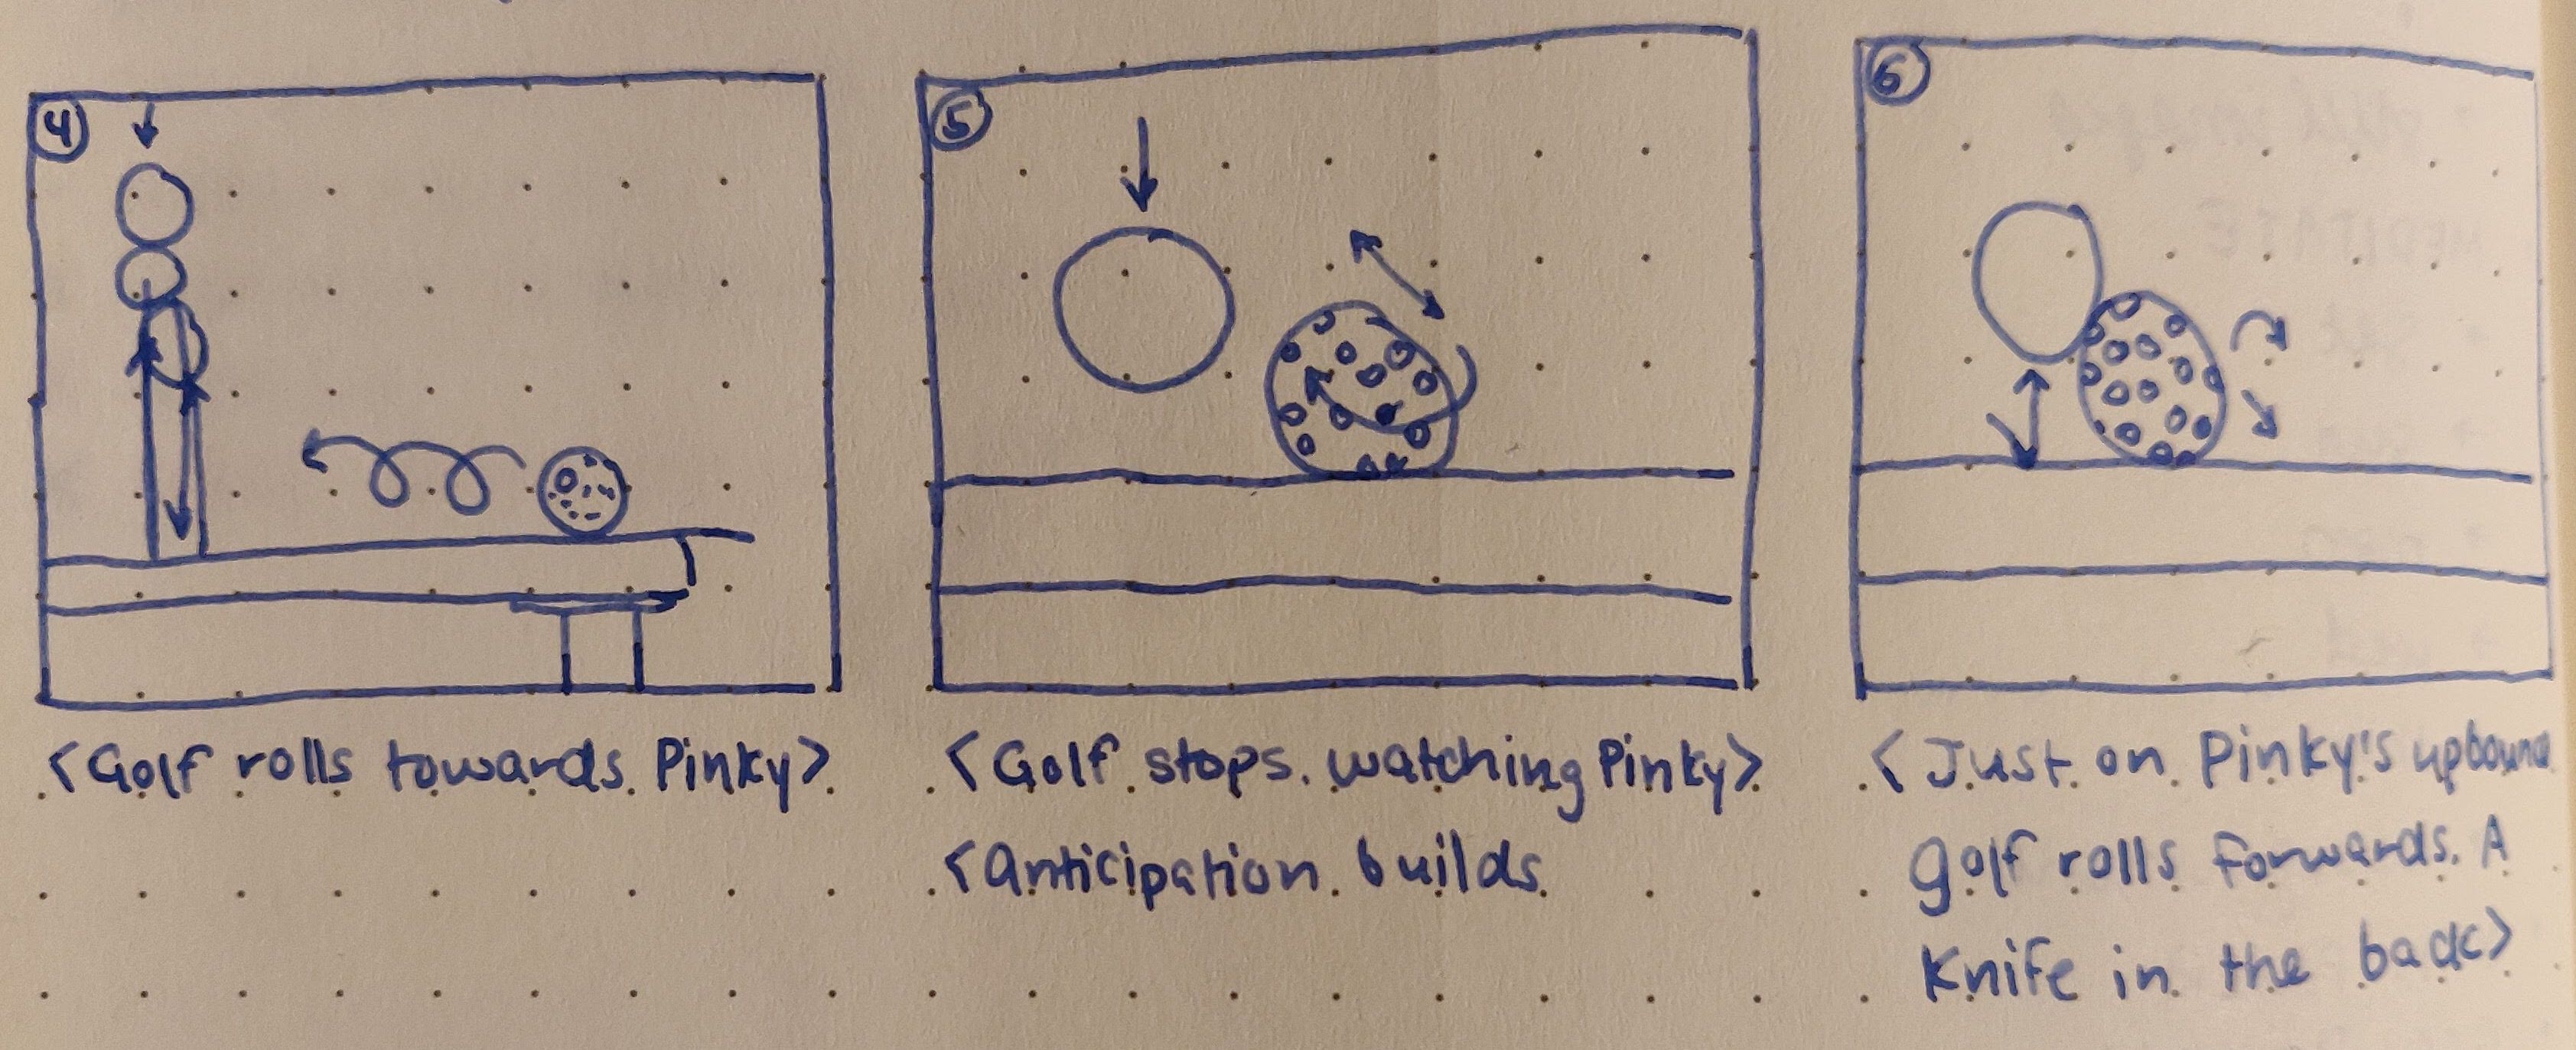 4
5
6
<Golf rolls towards Pinky>
<Golf stops. watching Pinky>
<Anticipation builds
<Just on Pinky's upbound
golf rolls forwards. A
Knife in the back>